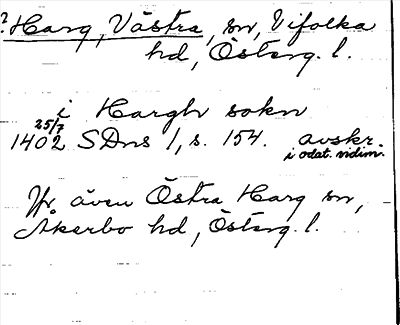 ? Harg, Västra, sn, Vifolka
hd, Österg. l.
i Hargh sokn
25/7
1402 SDns 1, s. 154. avskr.
i odat. vidim.
Jfr även Östra Harg sn,
Åkerbo hd, Österg. l.